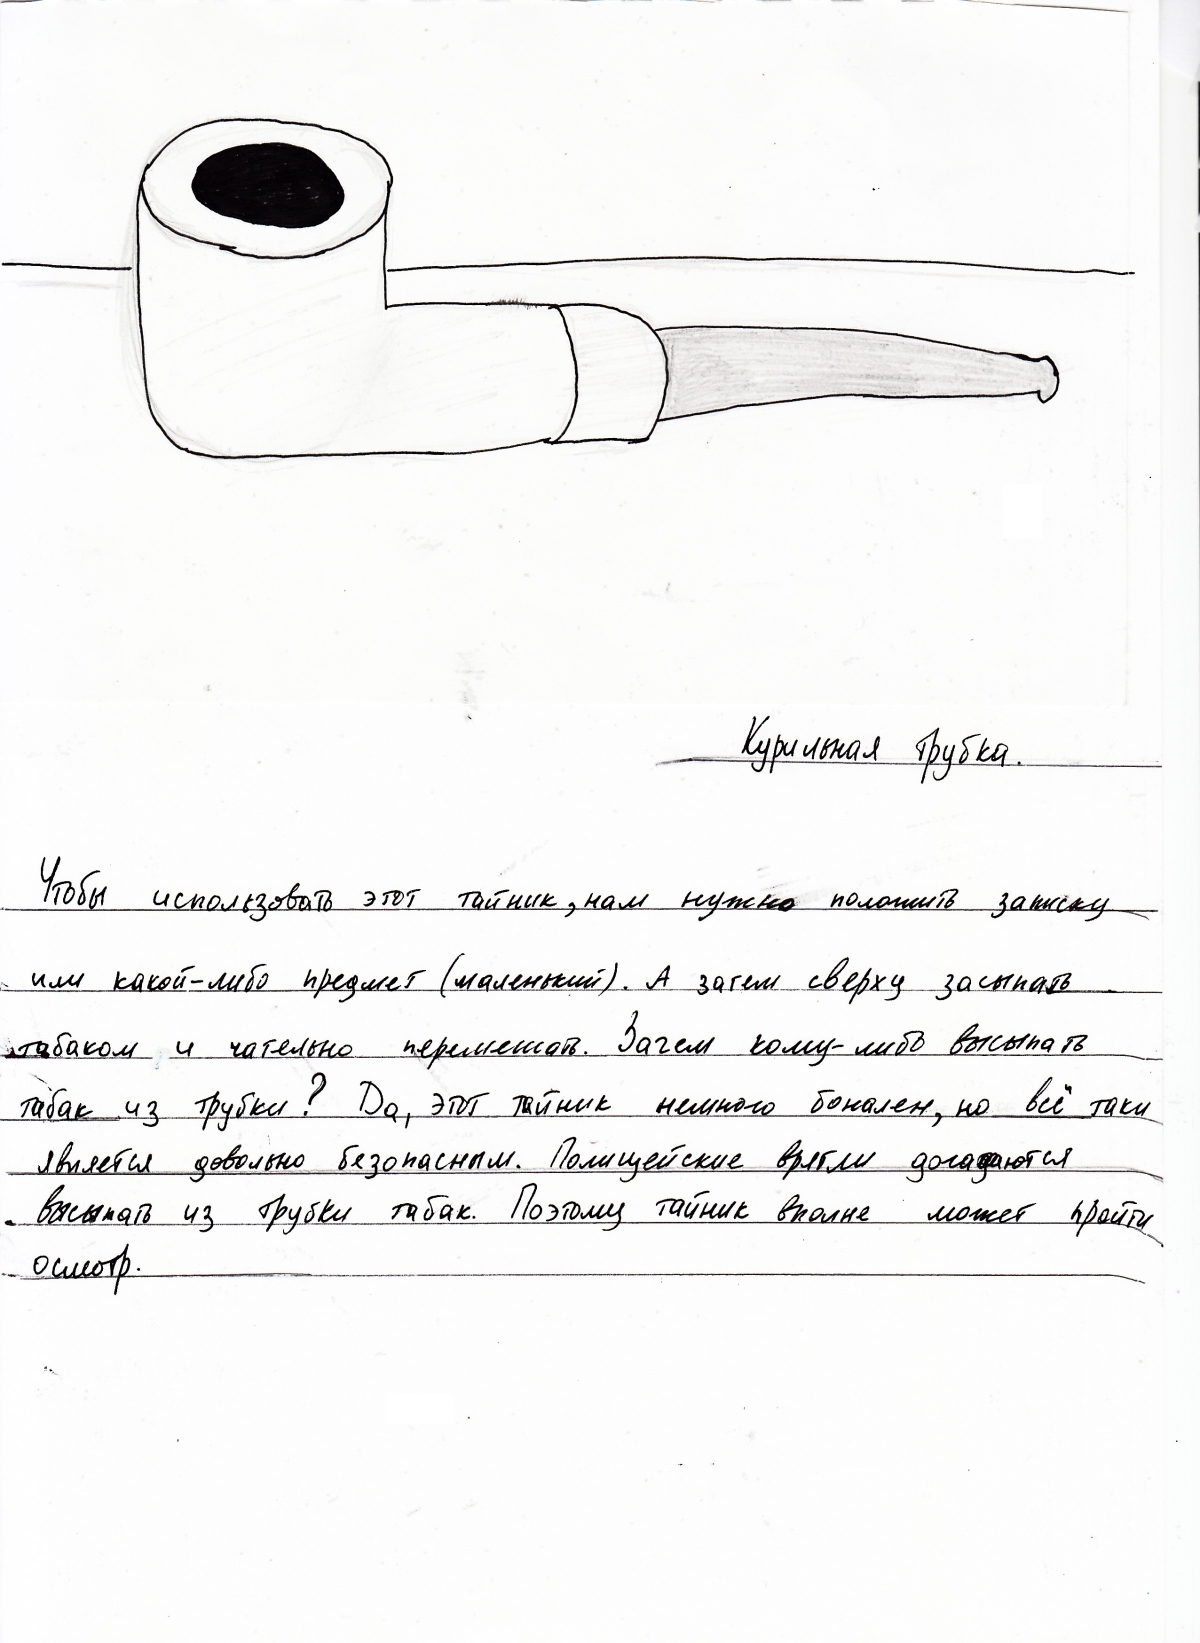 Курильная трубка.
Чтобы использовать этот тайник, нам нужно положить записку
или какой-либо предмет (маленький). А затем сверху засыпать
табаком и чательно перемешать. Зачем кому-либо высыпать
табак из трубки? Да, этот тайник немного бонален, но всё таки
является довольно безопасным. Полицейские врятли догадаются
высыпать из трубки табак. Поэтому тайник вполне может пройти
осмотр.